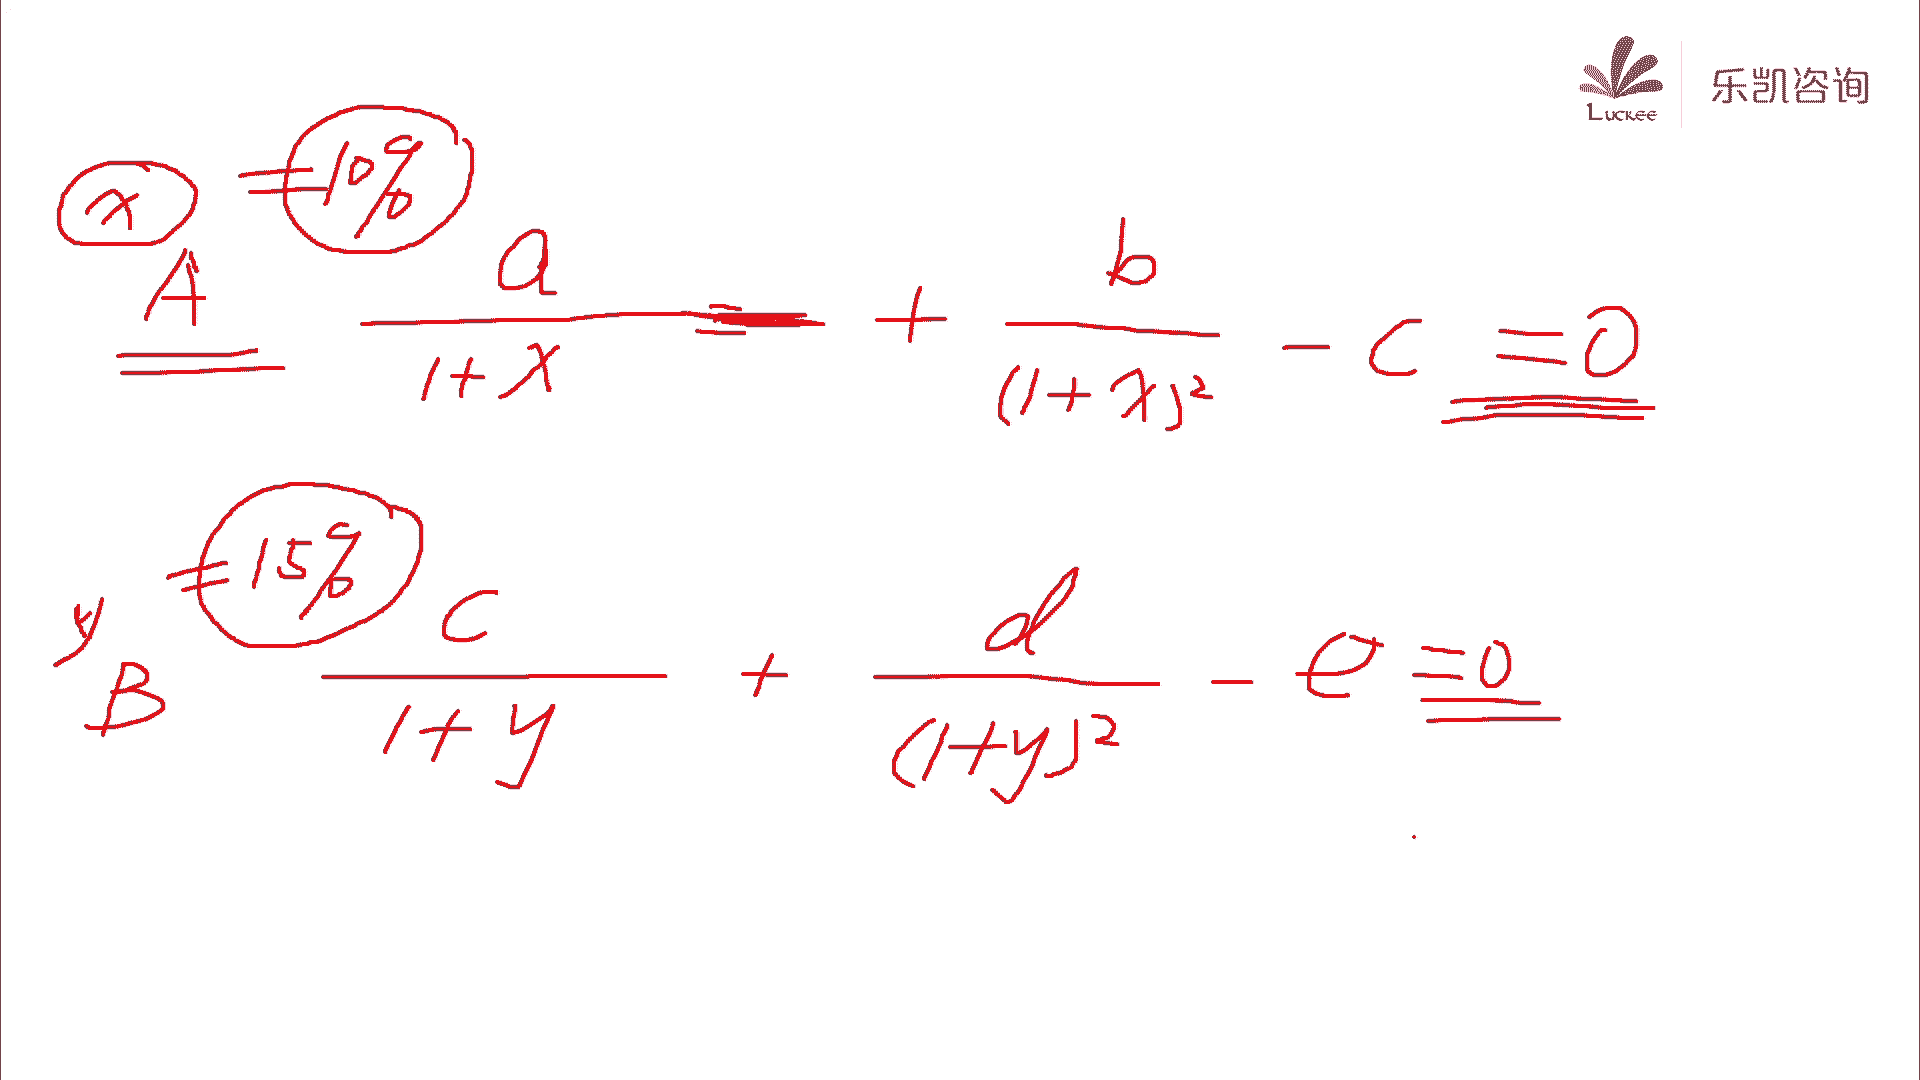 LUCKEE 乐凯咨询
x = 10%
A a/(1+x) + b/(1+x)² - c = 0
y = 15%
B c/(1+y) + d/(1+y)² - e = 0